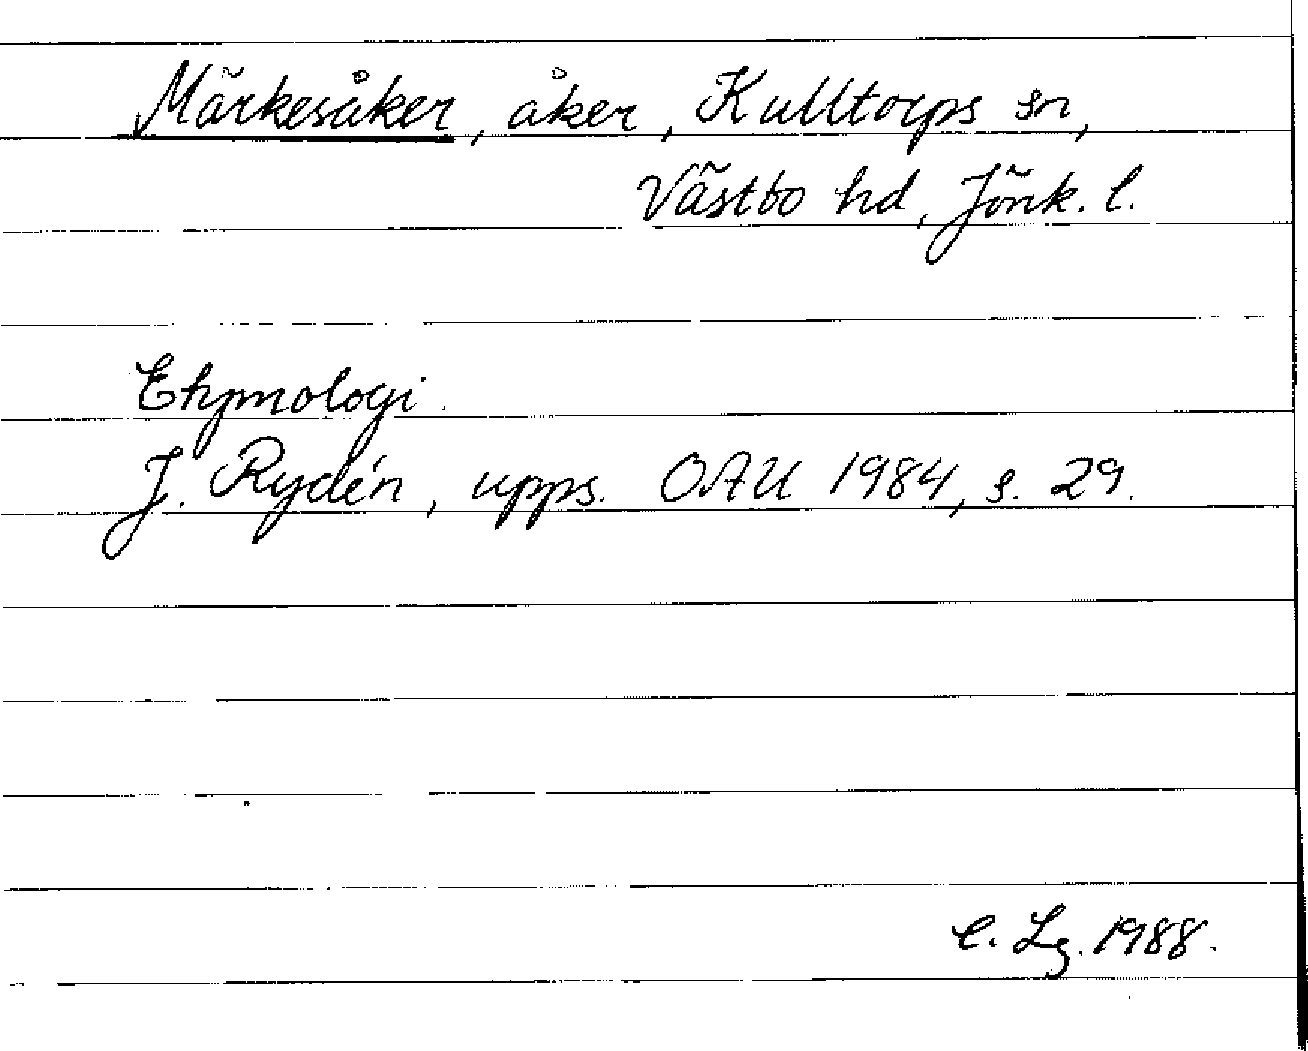 Märkesåker, åker, Kulltorps sn,
Västbo hd, Jönk. l.
Etymologi
J. Rydén, upps. OAU 1984, s. 29.
C. Lg. 1988.